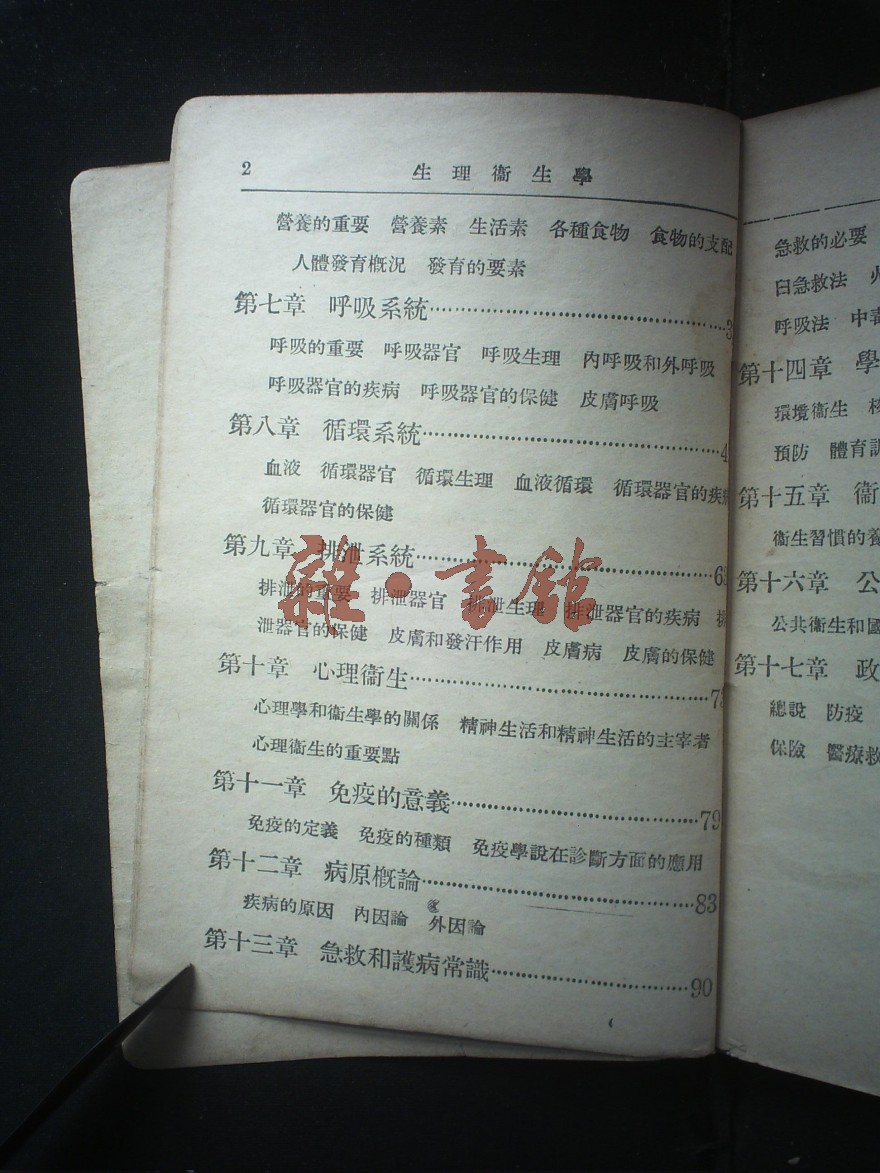 2 生理衞生學
營養的重要 營養素 生活素 各種食物 食物的支配
人體發育概況 發育的要素
第七章 呼吸系統
呼吸的重要 呼吸器官 呼吸生理 內呼吸和外呼吸
呼吸器官的疾病 呼吸器官的保健 皮膚呼吸
第八章 循環系統
血液 循環器官 循環生理 血液循環 循環器官的疾病
循環器官的保健
第九章 排泄系統 63
排泄的重要 排泄器官 排泄生理 排泄器官的疾病 排
泄器官的保健 皮膚和發汗作用 皮膚病 皮膚的保健
第十章 心理衞生
心理學和衞生學的關係 精神生活和精神生活的主宰者
心理衞生的重要點
第十一章 免疫的意義 79
免疫的定義 免疫的種類 免疫學說在診斷方面的應用
第十二章 病原概論 83
疾病的原因 內因論 外因論
第十三章 急救和護病常識 90
雜·書館
急救的必要
白急救法
呼吸法 中毒
第十四章 學
環境衞生
預防 體育
第十五章 衞
衞生習慣的養
第十六章 公
公共衞生和國
第十七章 政
總說 防疫
保險 醫療救